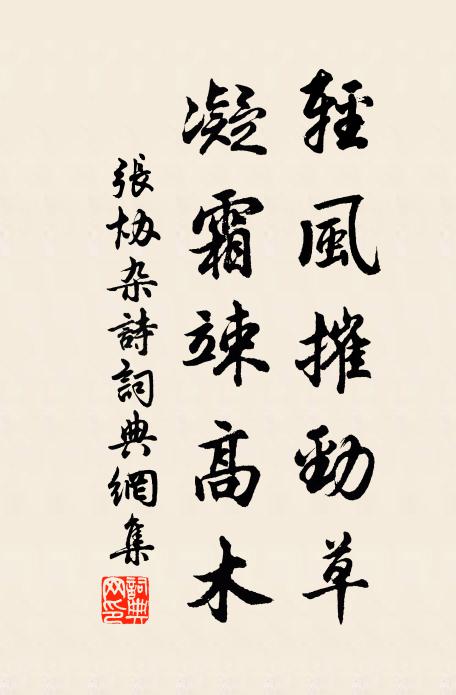 輕風摧勁草
凝霜竦高木
張協杂詩詞典網集
詞典网印